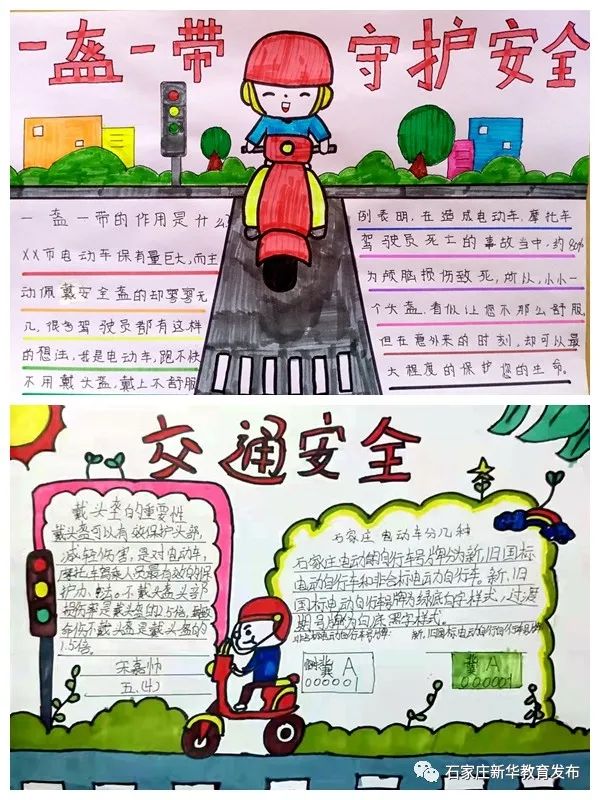 一盔一带 守护安全
一盔一带的作用是什么?
XX市电动车保有量巨大,而主
动佩戴安全盔的却寥寥无
几,很多驾驶员都有这样
的想法,我是电动车,跑不快
不用戴头盔,戴上不舒服
例表明,在造成电动车、摩托车
驾驶员死亡的事故当中,约80%
为颅脑损伤致死,所以,小小一
个头盔,看似让您不那么舒服
但在意外来的时刻,却可以最
大程度的保护您的生命。
交通安全
戴头盔的重要性
戴头盔可以有效保护头部,
减轻伤害,是对电动车,
摩托车驾乘人员最有效的保
护办法。不戴头盔头部
损伤率是戴头盔的2.5倍,
命伤不戴头盔是戴头盔的
1.5倍。
宋嘉帅
五.(4)
石家庄电动车分几种
石家庄电动自行车号牌分为新、旧国标
电动自行车和非合标电动自行车。新、旧
国标电动自行车号牌为绿底白字样式,过渡
期号牌为白底黑字样式。
新、旧国标电动自行车号牌
冀A
000001
冀A
000001
石家庄新华教育发布